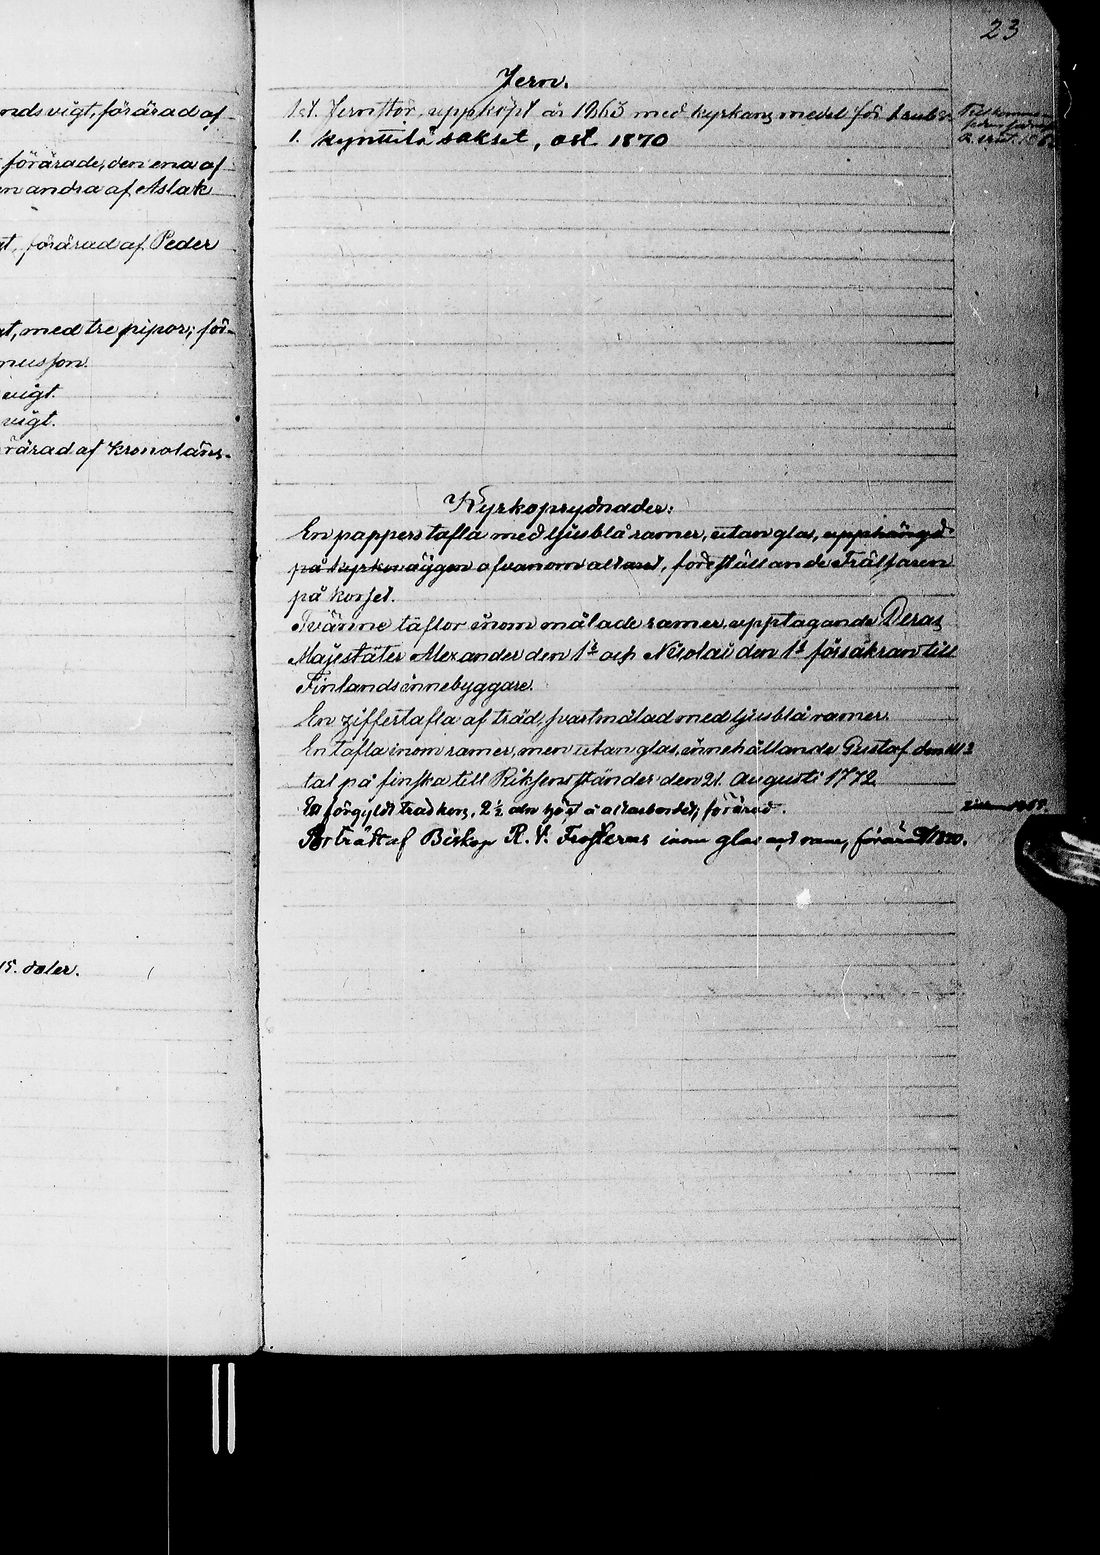 nds vigt, förärad af
förärade, den ena af
n andra af Aslak
gt, förärad af Peder
gt, med tre pipor; för-
nusson.
vigt.
vigt.
rärad af Kronoläns-
15. daler.
23
Jern.
1 st. Jern uppköpt år 1863 med kyrkans medel för
1. kynttilä sakset, ost. 1870
Kyrkoprydnader:
En papperstafla med ljusblå ramer, utan glas, upphängd
på kyrkoväggen ofvanom altaret, föreställande Frälsaren
på korset.
Tvänne taflor inom målade ramer, upptagande Deras
Majestäter Alexander den 1s och Nicolai den 1s försäkran till
Finlands innebyggare.
En ziffertafla af träd, svartmålad med ljusblå ramer.
En tafla inom ramer, men utan glas, innehållande Gustaf den III s
tal på finska till Riksens ständer den 21. Augusti 1772.
Ett förgyldt trädkors, 2½ aln högt å altarbordet, förärad.
Porträtt af Biskop R. V. Frosterus inom glas och ram, förärad 1880.